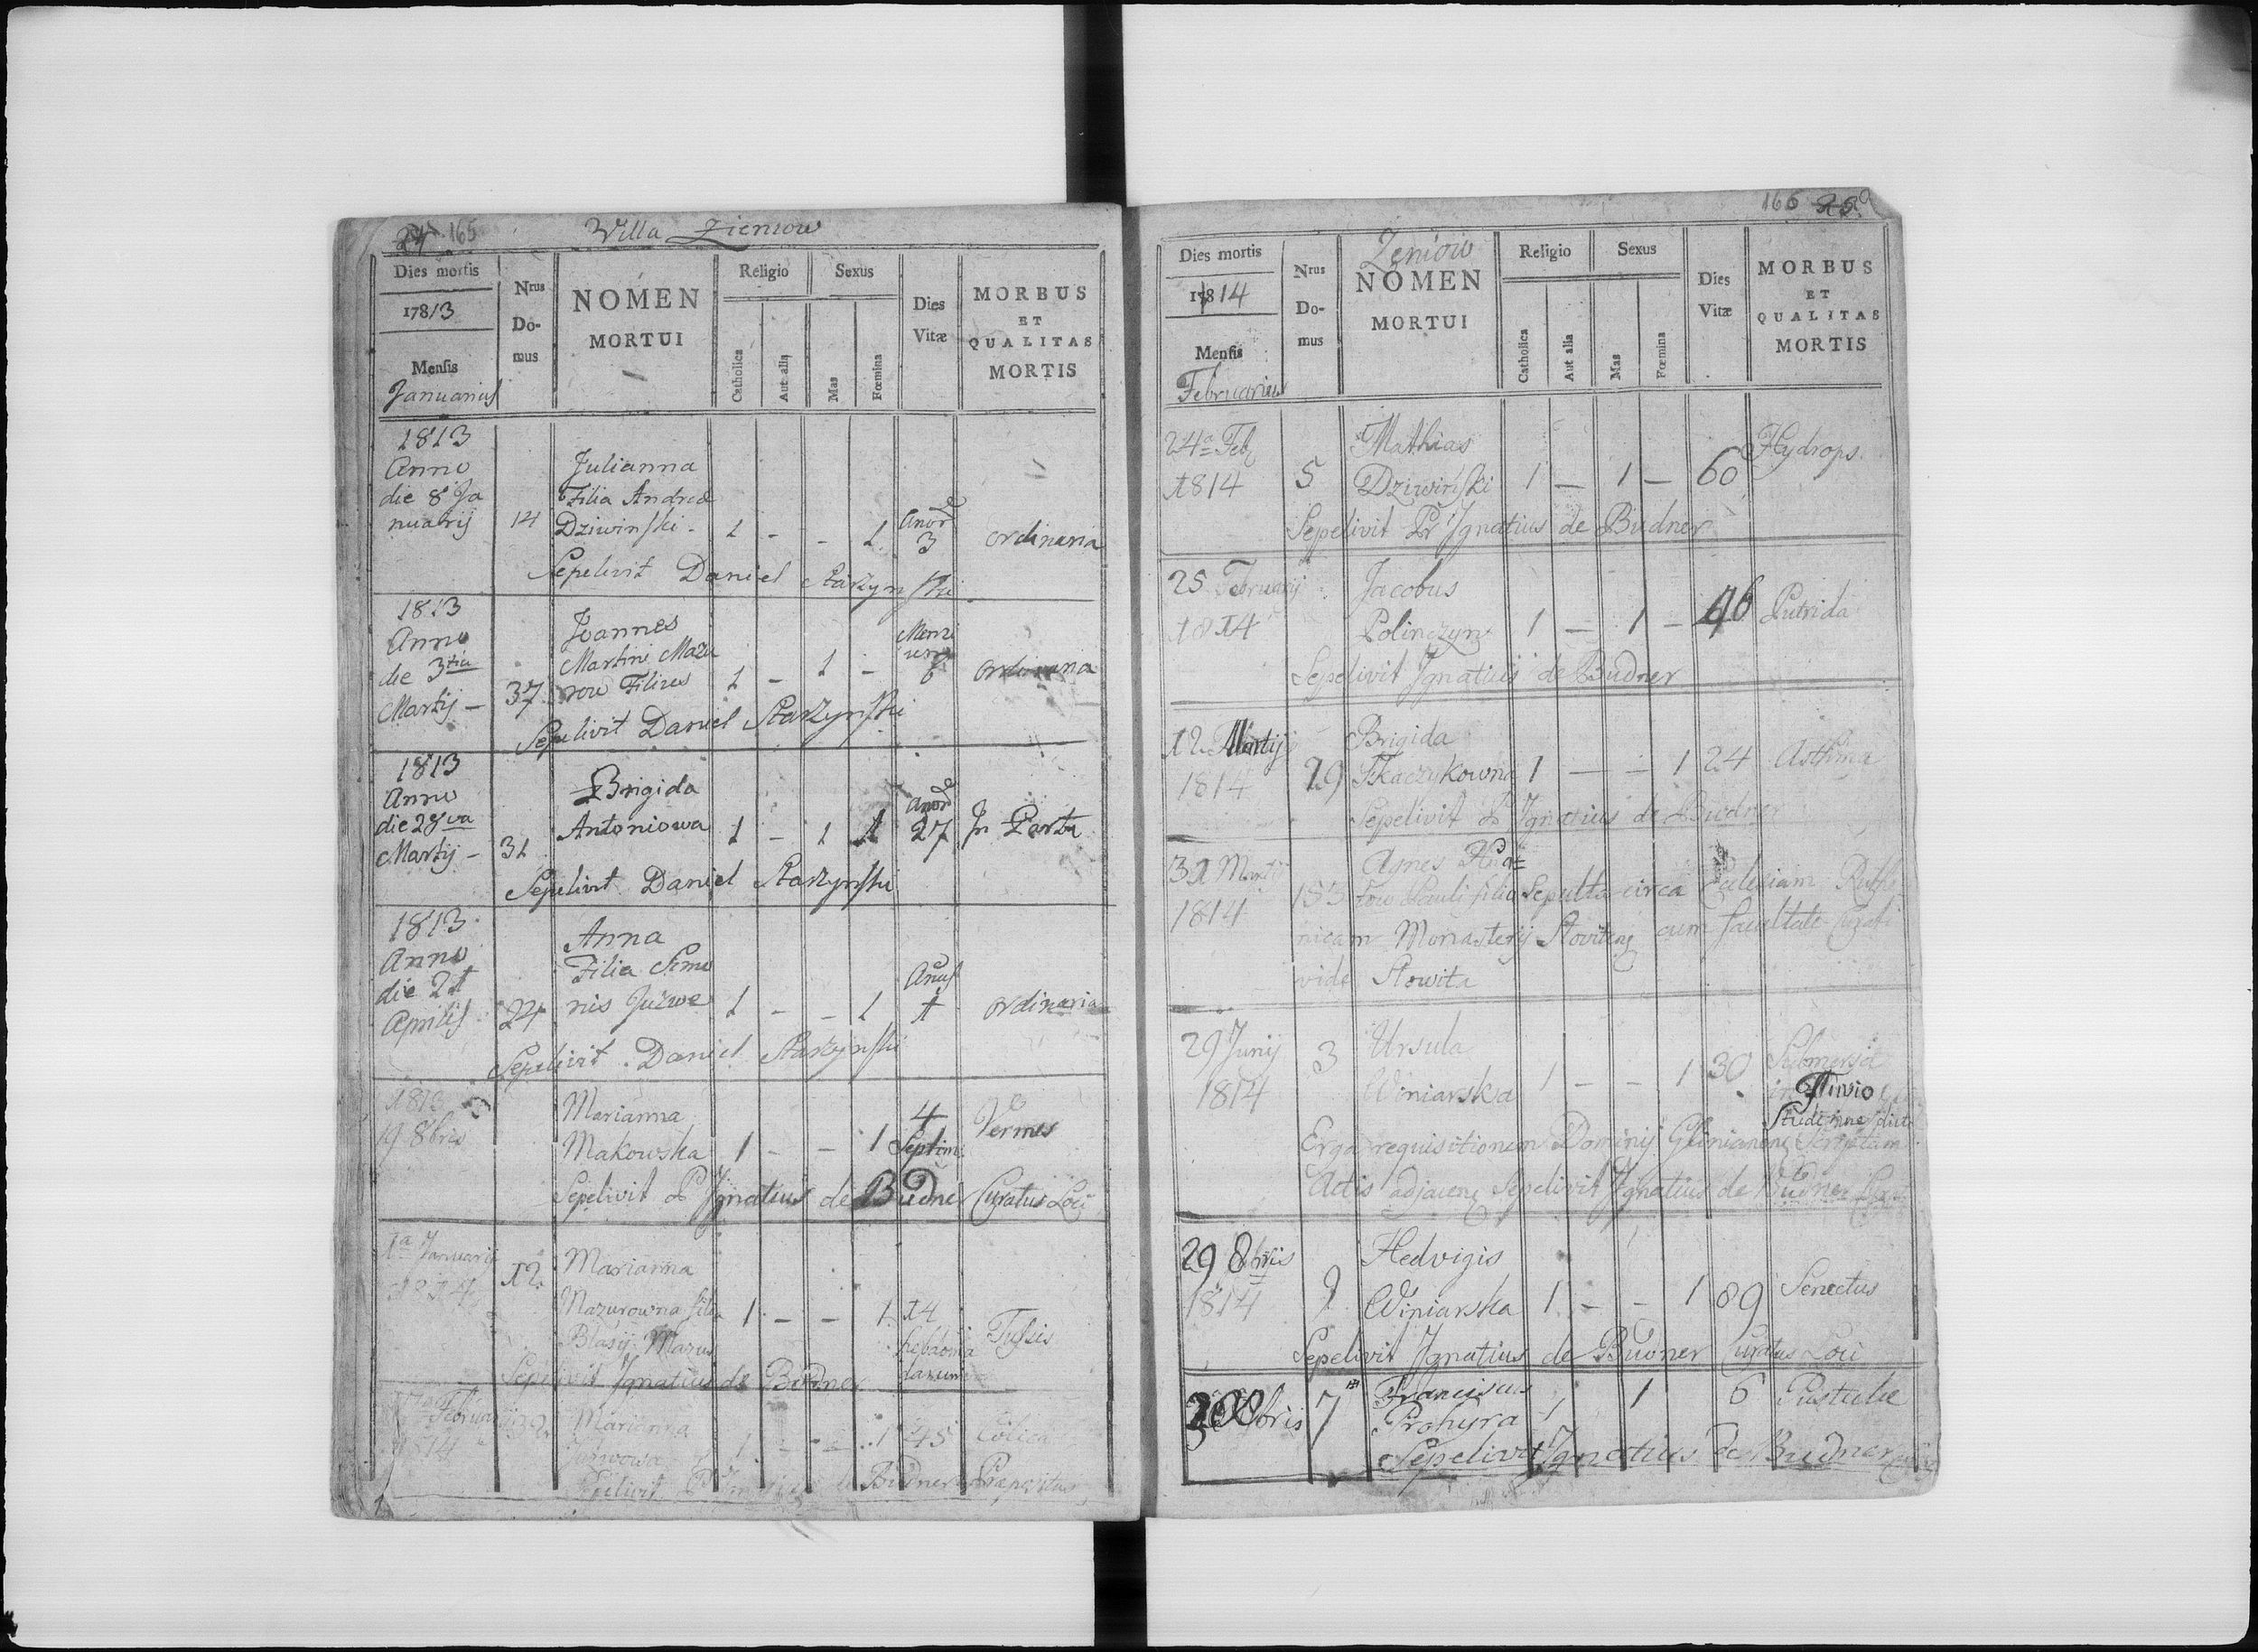 24 165
Willa Zieniow
Dies mortis
17813
Mensis
Januarius
Nrus
Do-
mus
NOMEN
MORTUI
Religio
Catholica
Aut alia
Sexus
Mas
Fœmina
Dies
Vitæ
MORBUS
ET
QUALITAS
MORTIS
1813
Anno
die 8 Ja
nuarij
14
Julianna
Filia Andreæ
Dziwinski -
1 - - 1
Anor
3
ordinaria
Sepelivit Daniel Starzynski
1813
Anno
die 3tia
Martij -
37
Joannes
Martini Mazu
row Filius
1 - 1 -
6
ordinaria
Sepelivit Daniel Starzynski
1813
Anno
die 28va
Martij -
31
Brigida
Antoniowa
1 - 1 1
Anor
27
In Partu
Sepelivit Daniel Starzynski
1813
Anno
die 21
Aprilis
24
Anna
Filia Simo
nis
1 - - 1
1
ordinaria
Sepelivit Daniel Starzynski
1813
19 8bris
Marianna
Makowska
1 - - 1
4
Septim
Vermes
Sepelivit P Ignatius de Budner Curatus Loci
1a Januarij
1814
12
Marianna
Mazurowna filia
Blasij Mazur
1 - - 1
14
hebdoma
darum
Tussis
Sepelivit Ignatius de Budner
Februarij
1814
32
Marianna
1 - - 1
45
Colica
Sepelivit P Ignatius de Budner Praepositus
166 25
Zeniow
Dies mortis
17814
Mensis
Februarius
Nrus
Do-
mus
NOMEN
MORTUI
Religio
Catholica
Aut alia
Sexus
Mas
Fœmina
Dies
Vitæ
MORBUS
ET
QUALITAS
MORTIS
24a Feb
1814
5
Mathias
Dziwiński
1 - 1 -
60
Hydrops
Sepelivit Pr Ignatius de Budner
25 Februarij
1814
Jacobus
Polinczyn
1 - 1 -
46
Putrida
Sepelivit Ignatius de Budner
12 Martij
1814
29
Brigida
Tkaczykowna
1 - - 1
24
Asthma
Sepelivit P Ignatius de Budner
31 Martij
1814
Agnes
tow Pauli filia Sepulta circa Ecclesiam Ruthe
nicam Monasterij cum facultate
vide Slowita
29 Junij
1814
3
Ursula
Winiarska
1 - - 1
30
Submersa
in Fluvio
Erga requisitionem Dominij
Actis adjacens Sepelivit Ignatius de Budner
29 8bris
1814
9
Hedvigis
Winiarska
1 - - 1
89
Senectus
Sepelivit Ignatius de Budner Curatus Loci
7
Franciscus
Prohyra
1 1
6
Pustulae
Sepelivit Ignatius de Budner